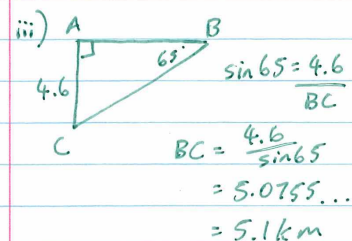 iii)
A
B
65°
4.6
C
sin65 = 4.6
BC
BC = 4.6
sin65
= 5.0755...
= 5.1km